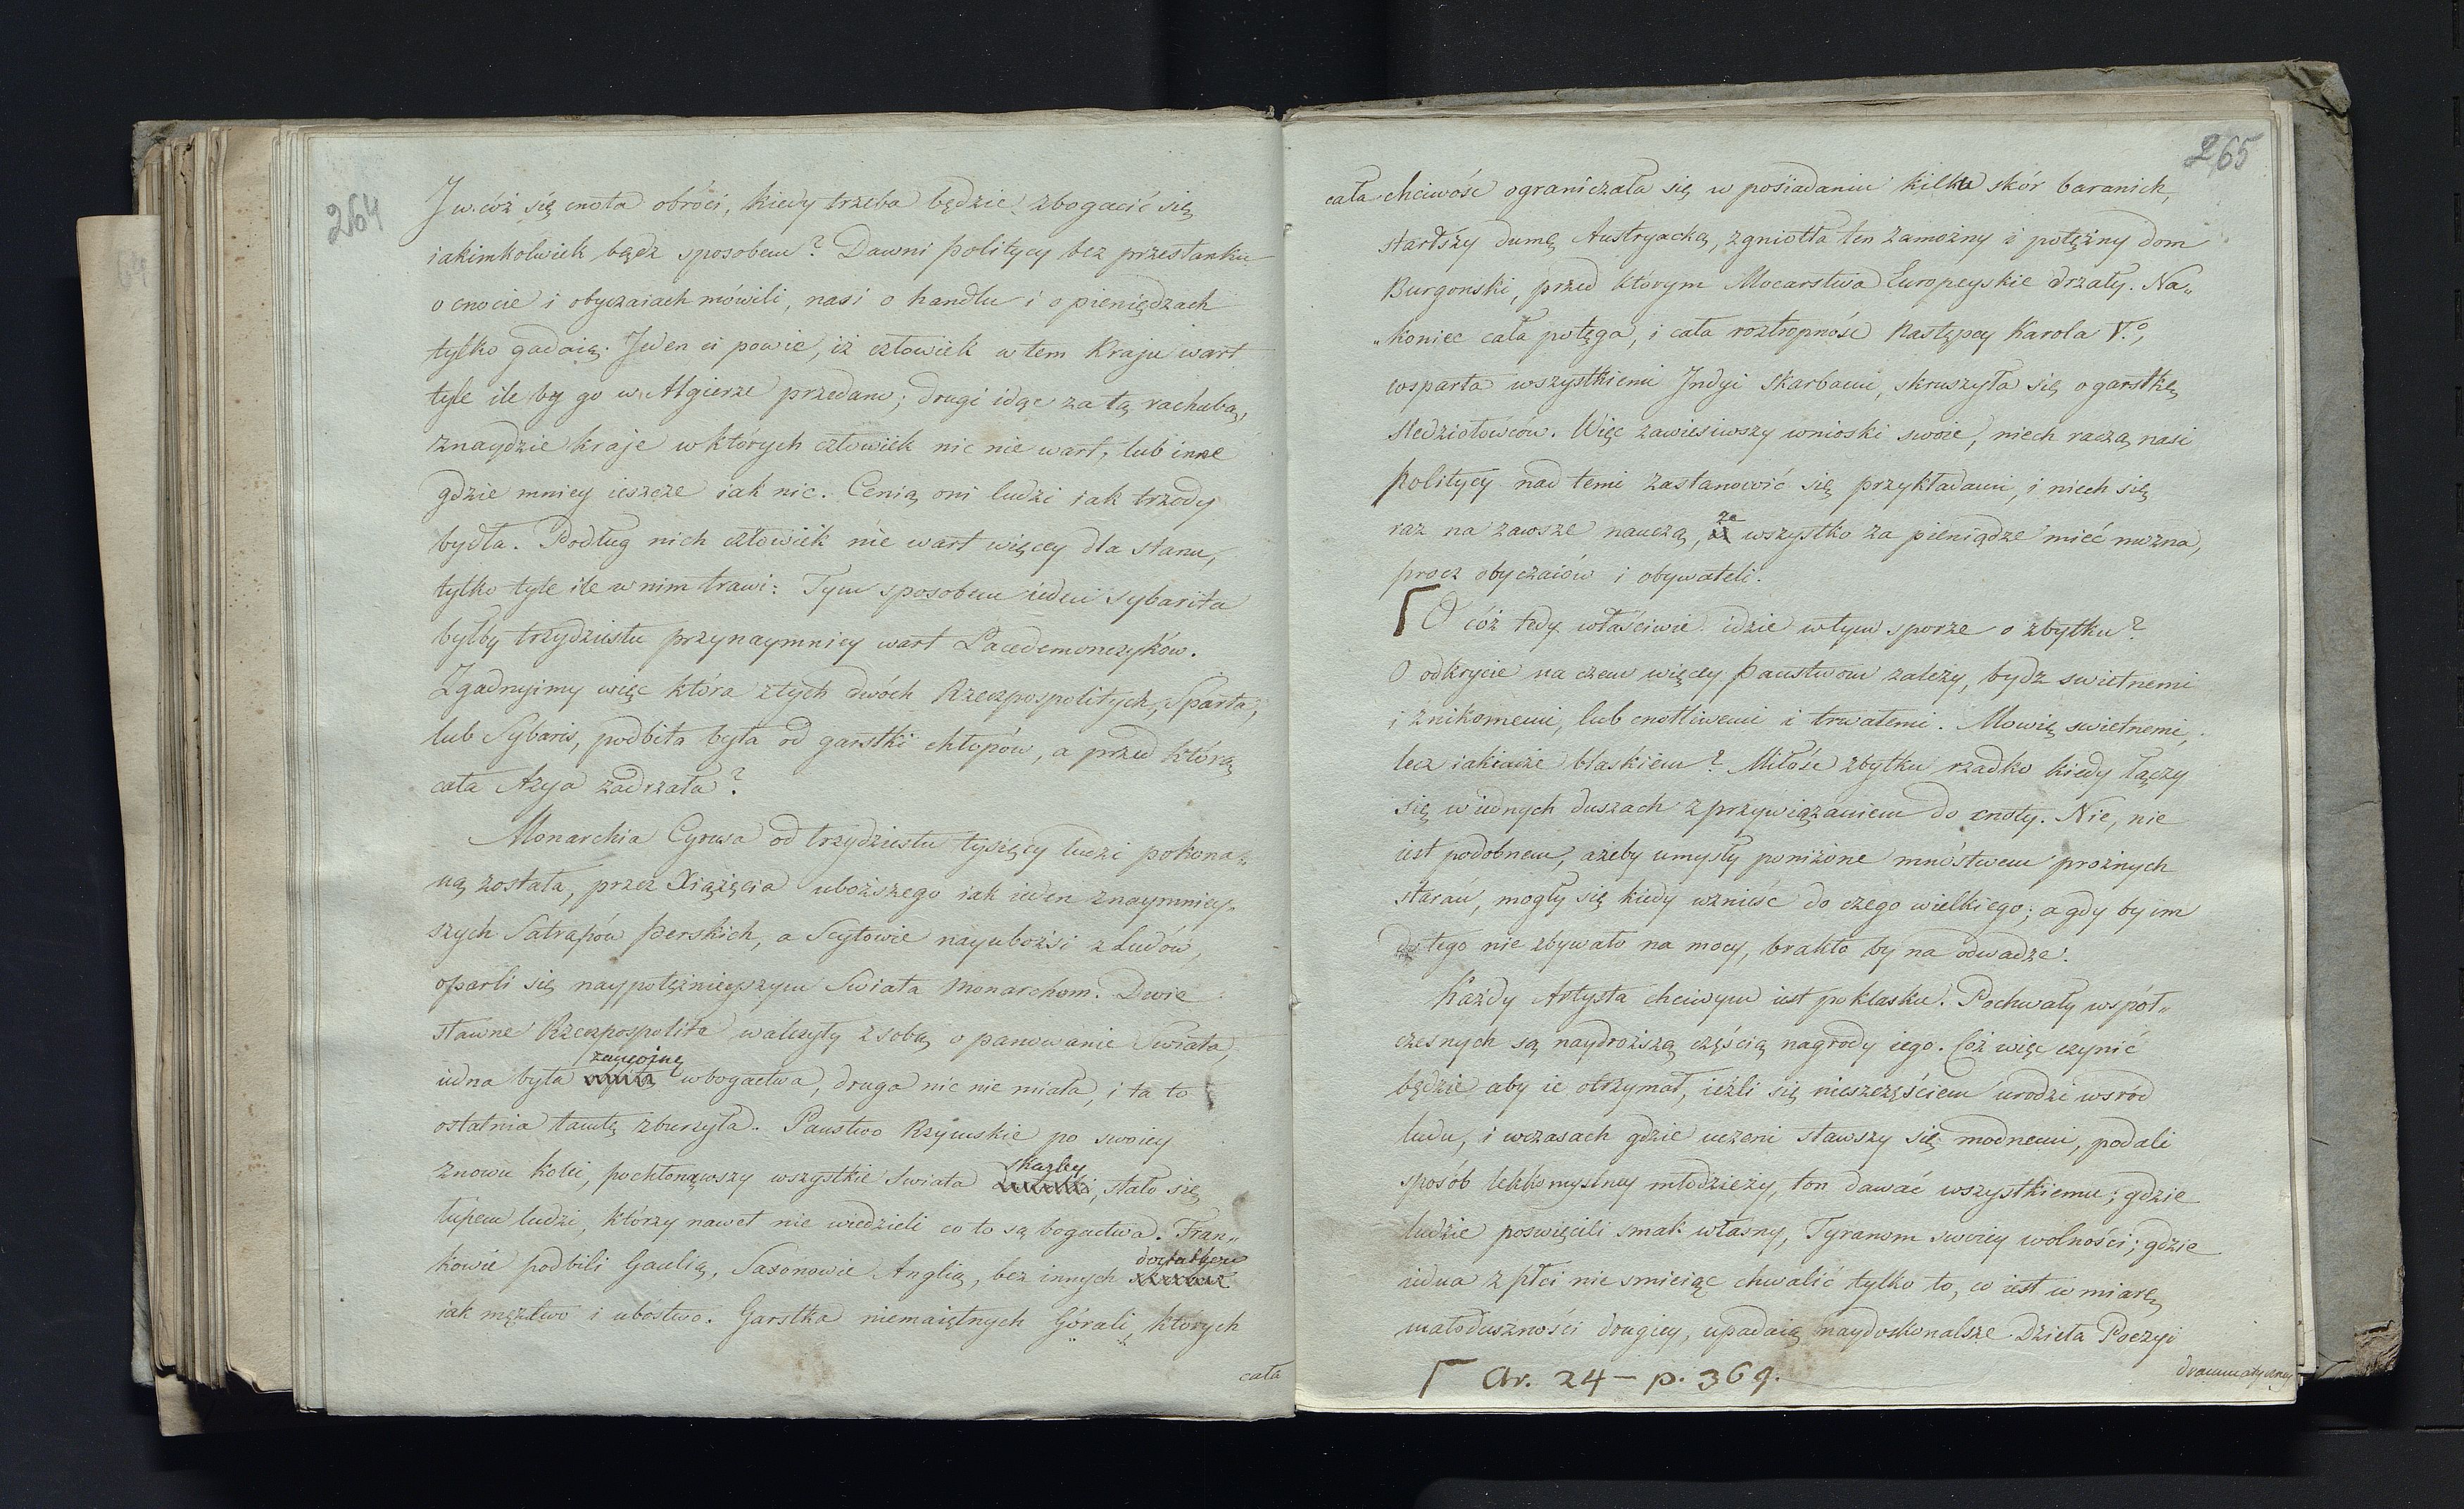 264
J w cóż się cnota obróci, kiedy trzeba będzie zbogacić się
iakimkolwiek bądz sposobem? Dawni politycy bez przestanku
o cnocie i obyczaiach mówili, nasi o handlu i o pieniędzach
tylko gadaią. Jeden ci powie, iż człowiek w tem kraju wart
tyle ile by go w Algierze przedano; drugi idąc za tą rachubą,
znaydzie kraje w których człowiek nic nie wart, lub inne
gdzie mniey ieszcze iak nic. Cenią oni ludzi iak trzody
bydła. Podług nich człowiek nie wart więcey dla stanu,
tylko tyle ile w nim trawi: Tym sposobem ieden sybarita
byłby trzydziestu przynaymniey wart Lacedemonczyków.
Zgadnijmy więc która z tych dwóch Rzeczpospolitych, Sparta,
lub Sybaris, podbita była od garstki chłopów, a przed którą
cała Azya zadrzała?
Monarchia Cyrusa od trzydziestu tysięcy ludzi pokona„
ną została, przez Xiążęcia uboższego iak ieden znaymniey„
szych Satrapów perskich, a Scytowie nayubożsi z Ludów,
oparli się naypotężnieyszym Swiata Monarchom. Dwie
sławne Rzeczpospolite walczyły z sobą o panowanie Swiata,
zamożną
iedna była w bogactwa, druga nic nie miała, i ta to
ostatnia tamtę zburzyła. Panstwo Rzymskie po swoiey
znowu kolei, pochłonąwszy wszystkie Swiata skarby, stało się
łupem ludzi, którzy nawet nie wiedzieli co to są bogactwa. Fran„
kowie podbili Gaulią, Saxonowie Anglią, bez innych dostatków
iak męztwo i ubóstwo. Garstka niemaiętnych Górali, których
cała
265
cała chciwość ograniczała się w posiadaniu kilku skór baranich,
starłszy dumę Austryacką, zgniotła ten zamożny i potężny dom
Burgonski, przed którym Mocarstwa Europeyskie drzały. Na„
„koniec cała potęga, i cała roztropność Następcy Karola V.º,
wsparta wszystkiemi Jndyi Skarbami, skruszyła się o garstkę
sledziołowców. Więc zawiesiwszy wnioski swoie, niech raczą nasi
politycy nad temi zastanowić się przykładami, i niech się
raz na zawsze nauczą, że wszystko za pieniądze mieć można,
procz obyczaiów i obywateli.
O cóż tedy właściwie idzie w tym sporze o zbytku?
O odkrycie na czem więcey Panstwom zależy, bydz swietnemi
i znikomemi, lub cnotliwemi i trwałemi. Mowię swietnemi,
lecz iakimże blaskiem? Miłość zbytku rzadko kiedy łączy
się w iednych duszach z przywiązaniem do cnoty. Nie, nie
iest podobnem, ażeby umysły poniżone mnóstwem prożnych
starań, mogły się kiedy wznieść do czego wielkiego; a gdy by im
do tego nie zbywało na mocy, brakło by na odwadze.
Każdy Artysta chciwym iest poklasku. Pochwały współ„
czesnych są naydroższą częścią nagrody iego. Cóż więc czynić
będzie aby ie otrzymał, ieźli się nieszczęściem urodzi wsród
ludu, i w czasach gdzie uczeni stawszy się modnemi, podali
sposób lekkomyslney młodzieży, ton dawać wszystkiemu; gdzie
ludzie poswięcili smak własny, Tyranom swoiey wolności; gdzie
iedna z płci nie smieiąc chwalić tylko to, co iest w miarę
małoduszności drugiey, upadaią naydoskonalsze Dzieła Poezyi
drammatyczney
Ar. 24 – p. 369.